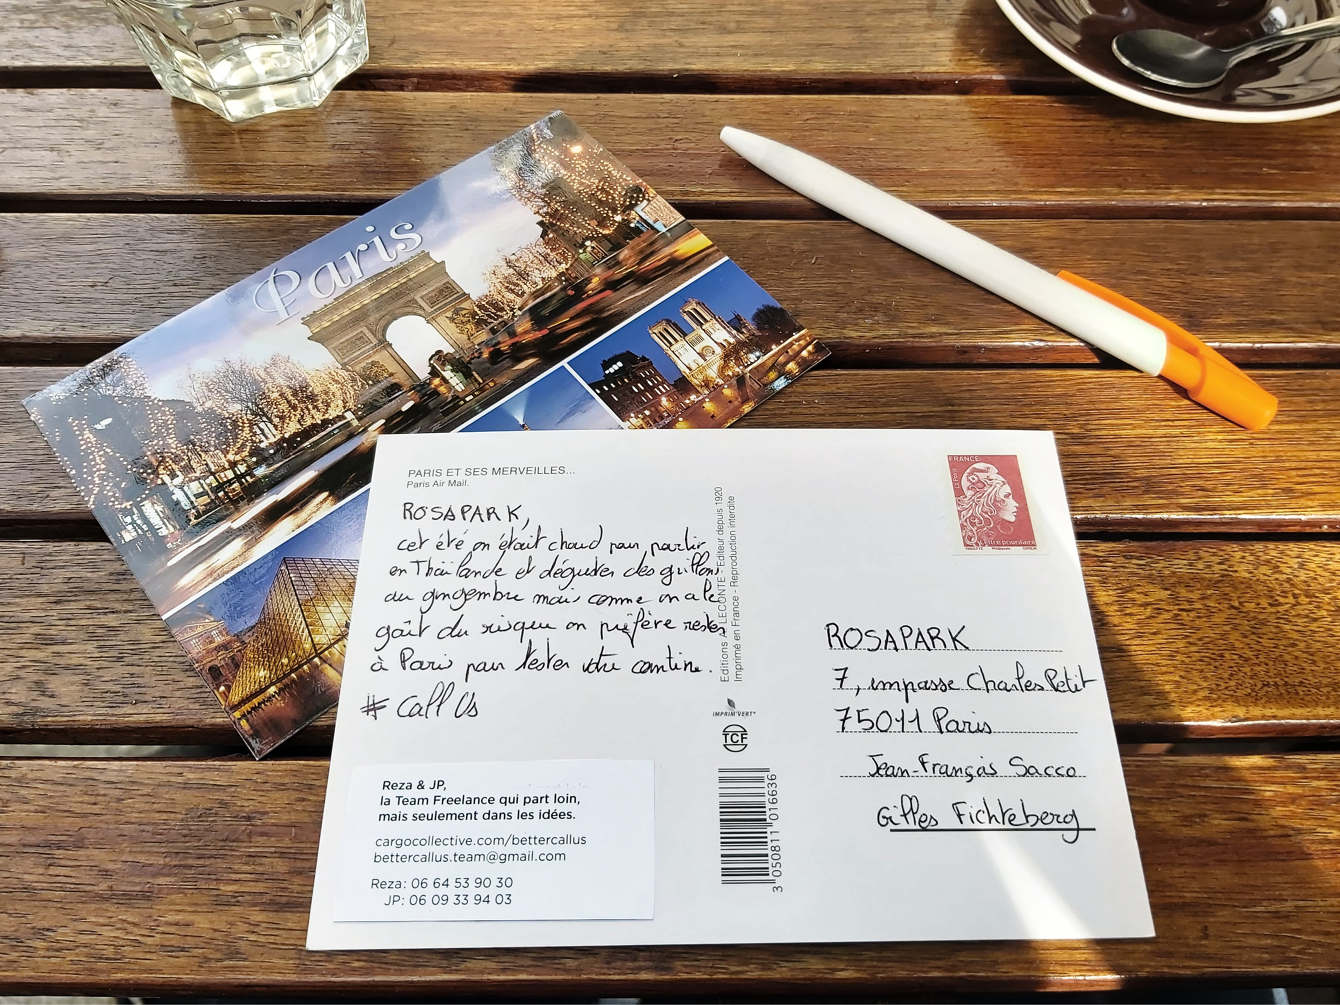 Paris
PARIS ET SES MERVEILLES...
Paris Air Mail.
ROSAPARK,
cet été on était chaud pour partir
en Thaïlande et déguster des grillons
au gingembre mais comme on a le
goût du risque on préfère rester
à Paris pour tester votre cantine.
# Call Us
Reza & JP,
la Team Freelance qui part loin,
mais seulement dans les idées.
cargocollective.com/bettercallus
bettercallus.team@gmail.com
Reza: 06 64 53 90 30
JP: 06 09 33 94 03
Editions A. LECONTE - Editeur depuis 1920
Imprimé en France - Reproduction interdite
IMPRIM'VERT®
TCF
3 050811 016636
FRANCE
ROSAPARK
7, impasse Charles Petit
75011 Paris
Jean-François Sacco
Gilles Fichteberg